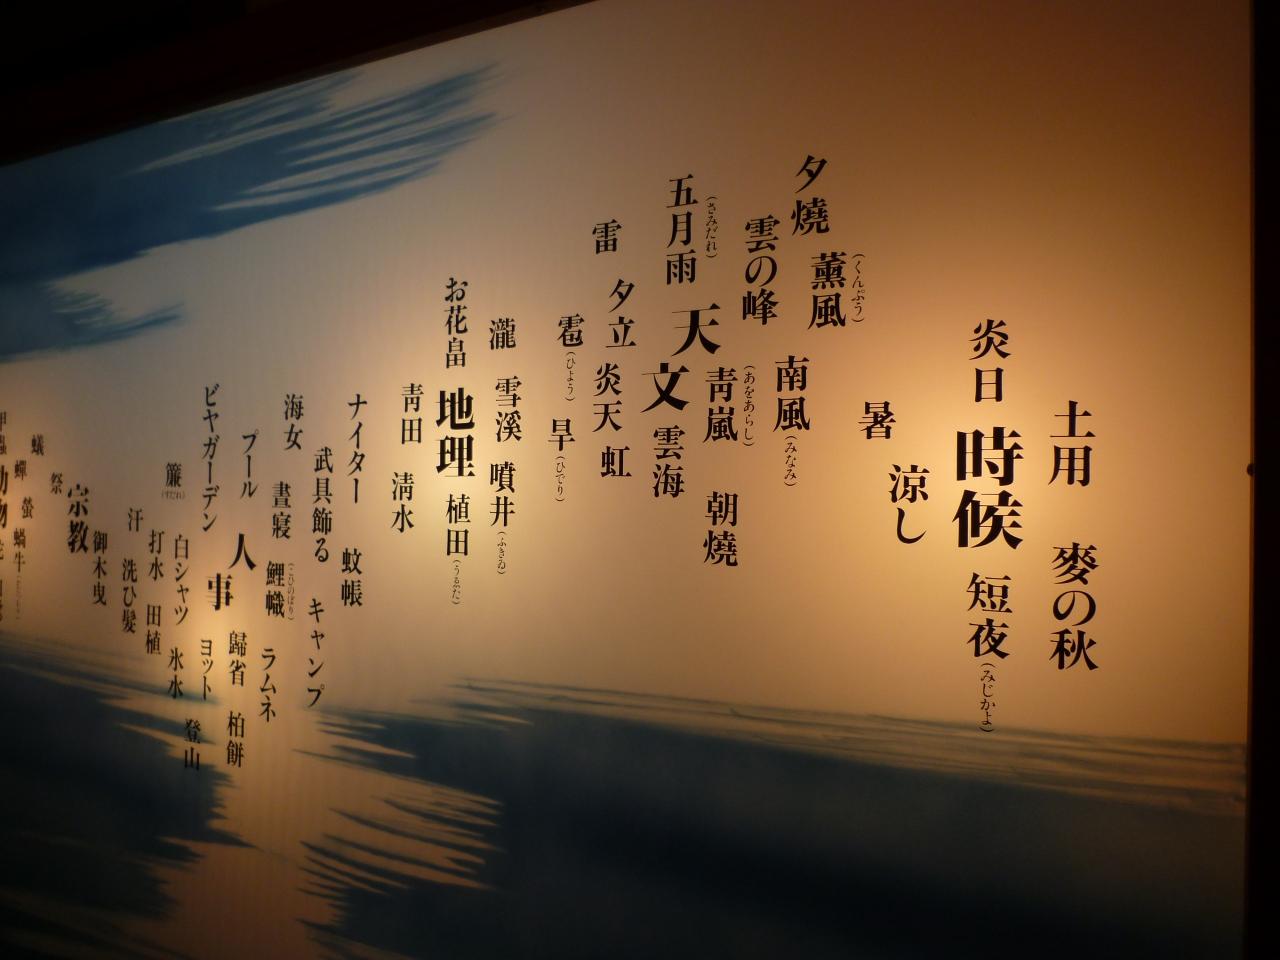 土用
麥の秋
炎日
時候
短夜
(みじかよ)
涼し
暑
薰風
(くんぷう)
夕燒
南風
(みなみ)
雲の峰
靑嵐
(あをあらし)
朝燒
五月雨
(さみだれ)
天文
雲海
雷
夕立
炎天
虹
雹
(ひよう)
旱
(ひでり)
瀧
雪溪
噴井
(ふきゐ)
お花畠
地理
植田
(うゑた)
靑田
淸水
ナイター
蚊帳
武具飾る
キャンプ
海女
晝寢
鯉幟
(こひのぼり)
ラムネ
プール
人事
歸省
柏餅
ビヤガーデン
ヨット
登山
簾
(すだれ)
白シャツ
氷水
打水
田植
汗
洗ひ髮
御木曳
宗敎
祭
蟻
蟬
螢
蝸牛